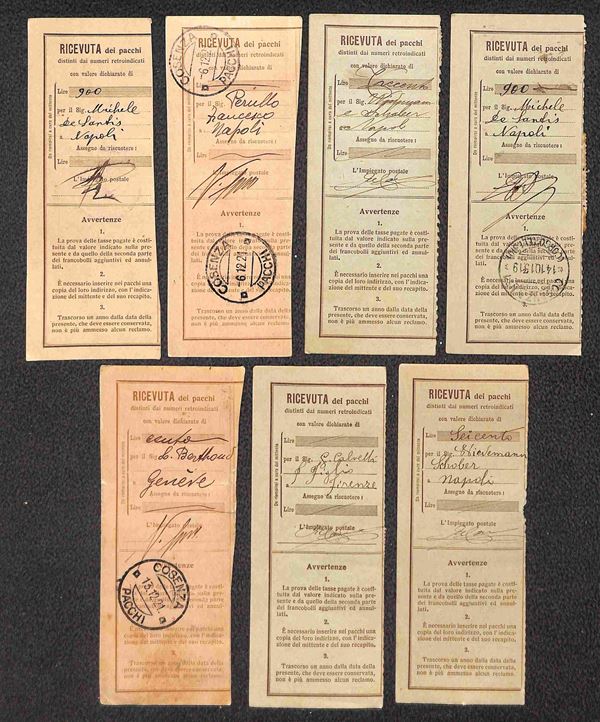 RICEVUTA dei pacchi
distinti dai numeri retroindicati
con valore dichiarato di
Lire 900
per il Sig. Michele
de Santis
Napoli
Assegno da riscuotere:
Lire
L'Impiegato postale
Da riempirsi a cura del mittente
Avvertenze
1.
La prova delle tasse pagate è costi-
tuita dal valore indicato sulla pre-
sente e da quello della seconda parte
dei francobolli aggiuntivi ed annul-
lati.
2.
È necessario inserire nei pacchi una
copia del loro indirizzo, con l'indica-
zione del mittente e del suo recapito.
3.
Trascorso un anno dalla data della
presente, che deve essere conservata,
non è più ammesso alcun reclamo.
RICEVUTA dei pacchi
distinti dai numeri retroindicati
con valore dichiarato di
COSENZA
6.12.21
PACCHI
Lire
per il Sig. Perillo
Francesco
Napoli
Assegno da riscuotere:
Lire
L'Impiegato postale
Da riempirsi a cura del mittente
Avvertenze
1.
La prova delle tasse pagate è costi-
tuita dal valore indicato sulla pre-
sente e da quello della seconda parte
dei francobolli aggiuntivi ed annul-
lati.
COSENZA
6.12.21
PACCHI
2.
È necessario inserire nei pacchi una
copia del loro indirizzo, con l'indica-
zione del mittente e del suo recapito.
3.
Trascorso un anno dalla data della
presente, che deve essere conservata,
non è più ammesso alcun reclamo.
RICEVUTA dei pacchi
distinti dai numeri retroindicati
con valore dichiarato di
Lire Trecento
per il Sig.
e Schober
Napoli
Assegno da riscuotere:
Lire
L'Impiegato postale
Da riempirsi a cura del mittente
Avvertenze
1.
La prova delle tasse pagate è costi-
tuita dal valore indicato sulla pre-
sente e da quello della seconda parte
dei francobolli aggiuntivi ed annul-
lati.
2.
È necessario inserire nei pacchi una
copia del loro indirizzo, con l'indica-
zione del mittente e del suo recapito.
3.
Trascorso un anno dalla data della
presente, che deve essere conservata,
non è più ammesso alcun reclamo.
RICEVUTA dei pacchi
distinti dai numeri retroindicati
con valore dichiarato di
Lire 900
per il Sig. Michele
de Santis
Napoli
Assegno da riscuotere:
Lire
L'Impiegato postale
Da riempirsi a cura del mittente
Avvertenze
1.
La prova delle tasse pagate è costi-
tuita dal valore indicato sulla pre-
sente e da quello della seconda parte
dei francobolli aggiuntivi ed annul-
lati.
2.
È necessario inserire nei pacchi una
copia del loro indirizzo, con l'indica-
zione del mittente e del suo recapito.
3.
Trascorso un anno dalla data della
presente, che deve essere conservata,
non è più ammesso alcun reclamo.
RICEVUTA dei pacchi
distinti dai numeri retroindicati
con valore dichiarato di
Lire cento
per il Sig.
L. Berthoud
Genève
Assegno da riscuotere:
Lire
L'Impiegato postale
Da riempirsi a cura del mittente
Avvertenze
1.
La prova delle tasse pagate è costi-
tuita dal valore indicato sulla pre-
sente e da quello della seconda parte
dei francobolli aggiuntivi ed annul-
lati.
COSENZA
13.12.21
PACCHI
2.
È necessario inserire nei pacchi una
copia del loro indirizzo, con l'indica-
zione del mittente e del suo recapito.
3.
Trascorso un anno dalla data della
presente, che deve essere conservata,
non è più ammesso alcun reclamo.
RICEVUTA dei pacchi
distinti dai numeri retroindicati
con valore dichiarato di
Lire
per il Sig. G. Calvetti
Firenze
Assegno da riscuotere:
Lire
L'Impiegato postale
Da riempirsi a cura del mittente
Avvertenze
1.
La prova delle tasse pagate è costi-
tuita dal valore indicato sulla pre-
sente e da quello della seconda parte
dei francobolli aggiuntivi ed annul-
lati.
2.
È necessario inserire nei pacchi una
copia del loro indirizzo, con l'indica-
zione del mittente e del suo recapito.
3.
Trascorso un anno dalla data della
presente, che deve essere conservata,
non è più ammesso alcun reclamo.
RICEVUTA dei pacchi
distinti dai numeri retroindicati
con valore dichiarato di
Lire Seicento
per il Sig. Wiedemann
Schober
Napoli
Assegno da riscuotere:
Lire
L'Impiegato postale
Da riempirsi a cura del mittente
Avvertenze
1.
La prova delle tasse pagate è costi-
tuita dal valore indicato sulla pre-
sente e da quello della seconda parte
dei francobolli aggiuntivi ed annul-
lati.
2.
È necessario inserire nei pacchi una
copia del loro indirizzo, con l'indica-
zione del mittente e del suo recapito.
3.
Trascorso un anno dalla data della
presente, che deve essere conservata,
non è più ammesso alcun reclamo.